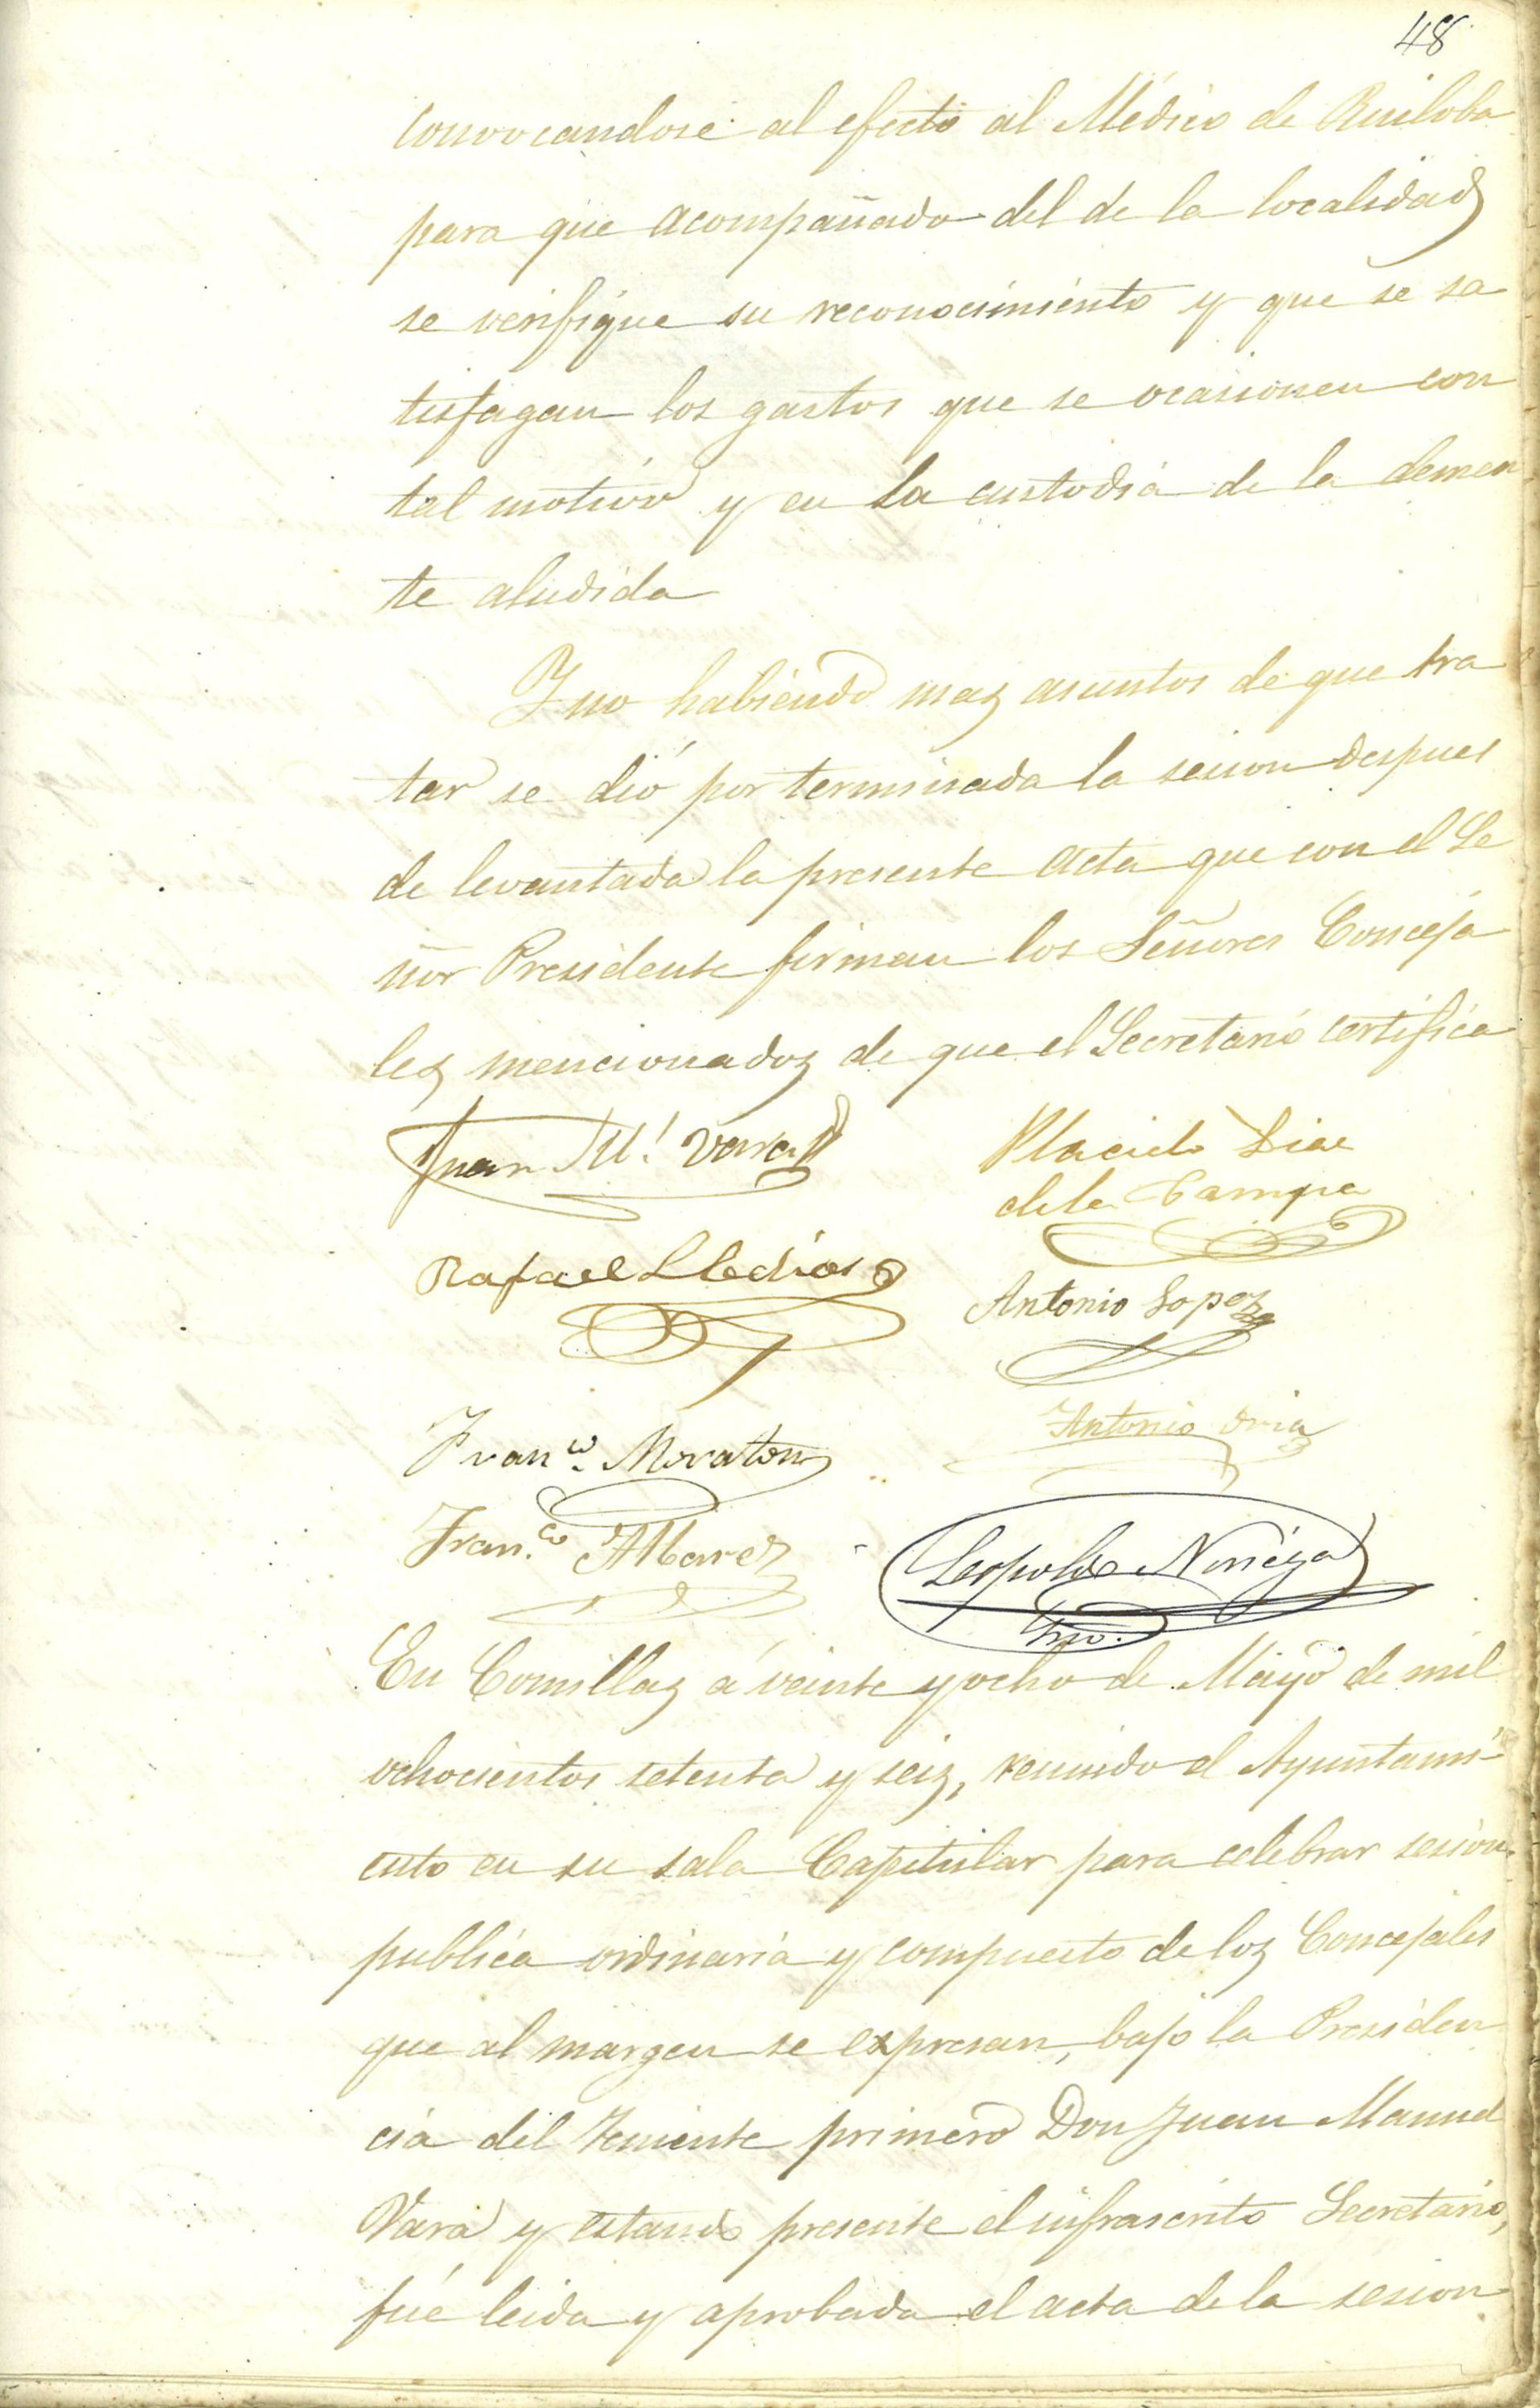 48
convocandose al efecto al Médico de Ruiloba
para que acompañado del de la localidad
se verifique su reconocimiento y que se sa
tisfagan los gastos que se ocasionen con
tal motivo y en la custodia de la demen
te aludida
Y no habiendo mas asuntos de que tra
tar se dió por terminada la sesion despues
de levantada la presente acta que con el Se
ñor Presidente firman los Señores Conceja
les mencionados de que el Secretario certifica
Juan Ml. Vara
Placido Diaz
de la Campa
Rafael
Antonio Lopez
Antonio Oria
Franco. Moraton
Franco. Albarez
Leopoldo Noriega
Srio.
En Comillas á veinte y ocho de Mayo de mil
ochocientos setenta y seis, reunido el Ayuntami-
ento en su sala Capitular para celebrar sesion
publica ordinaria y compuesto de los Concejales
que al margen se expresan, bajo la Presiden
cia del Teniente primero Don Juan Manuel
Vara y estando presente el infrascrito Secretario,
fué leida y aprobada el acta de la sesion